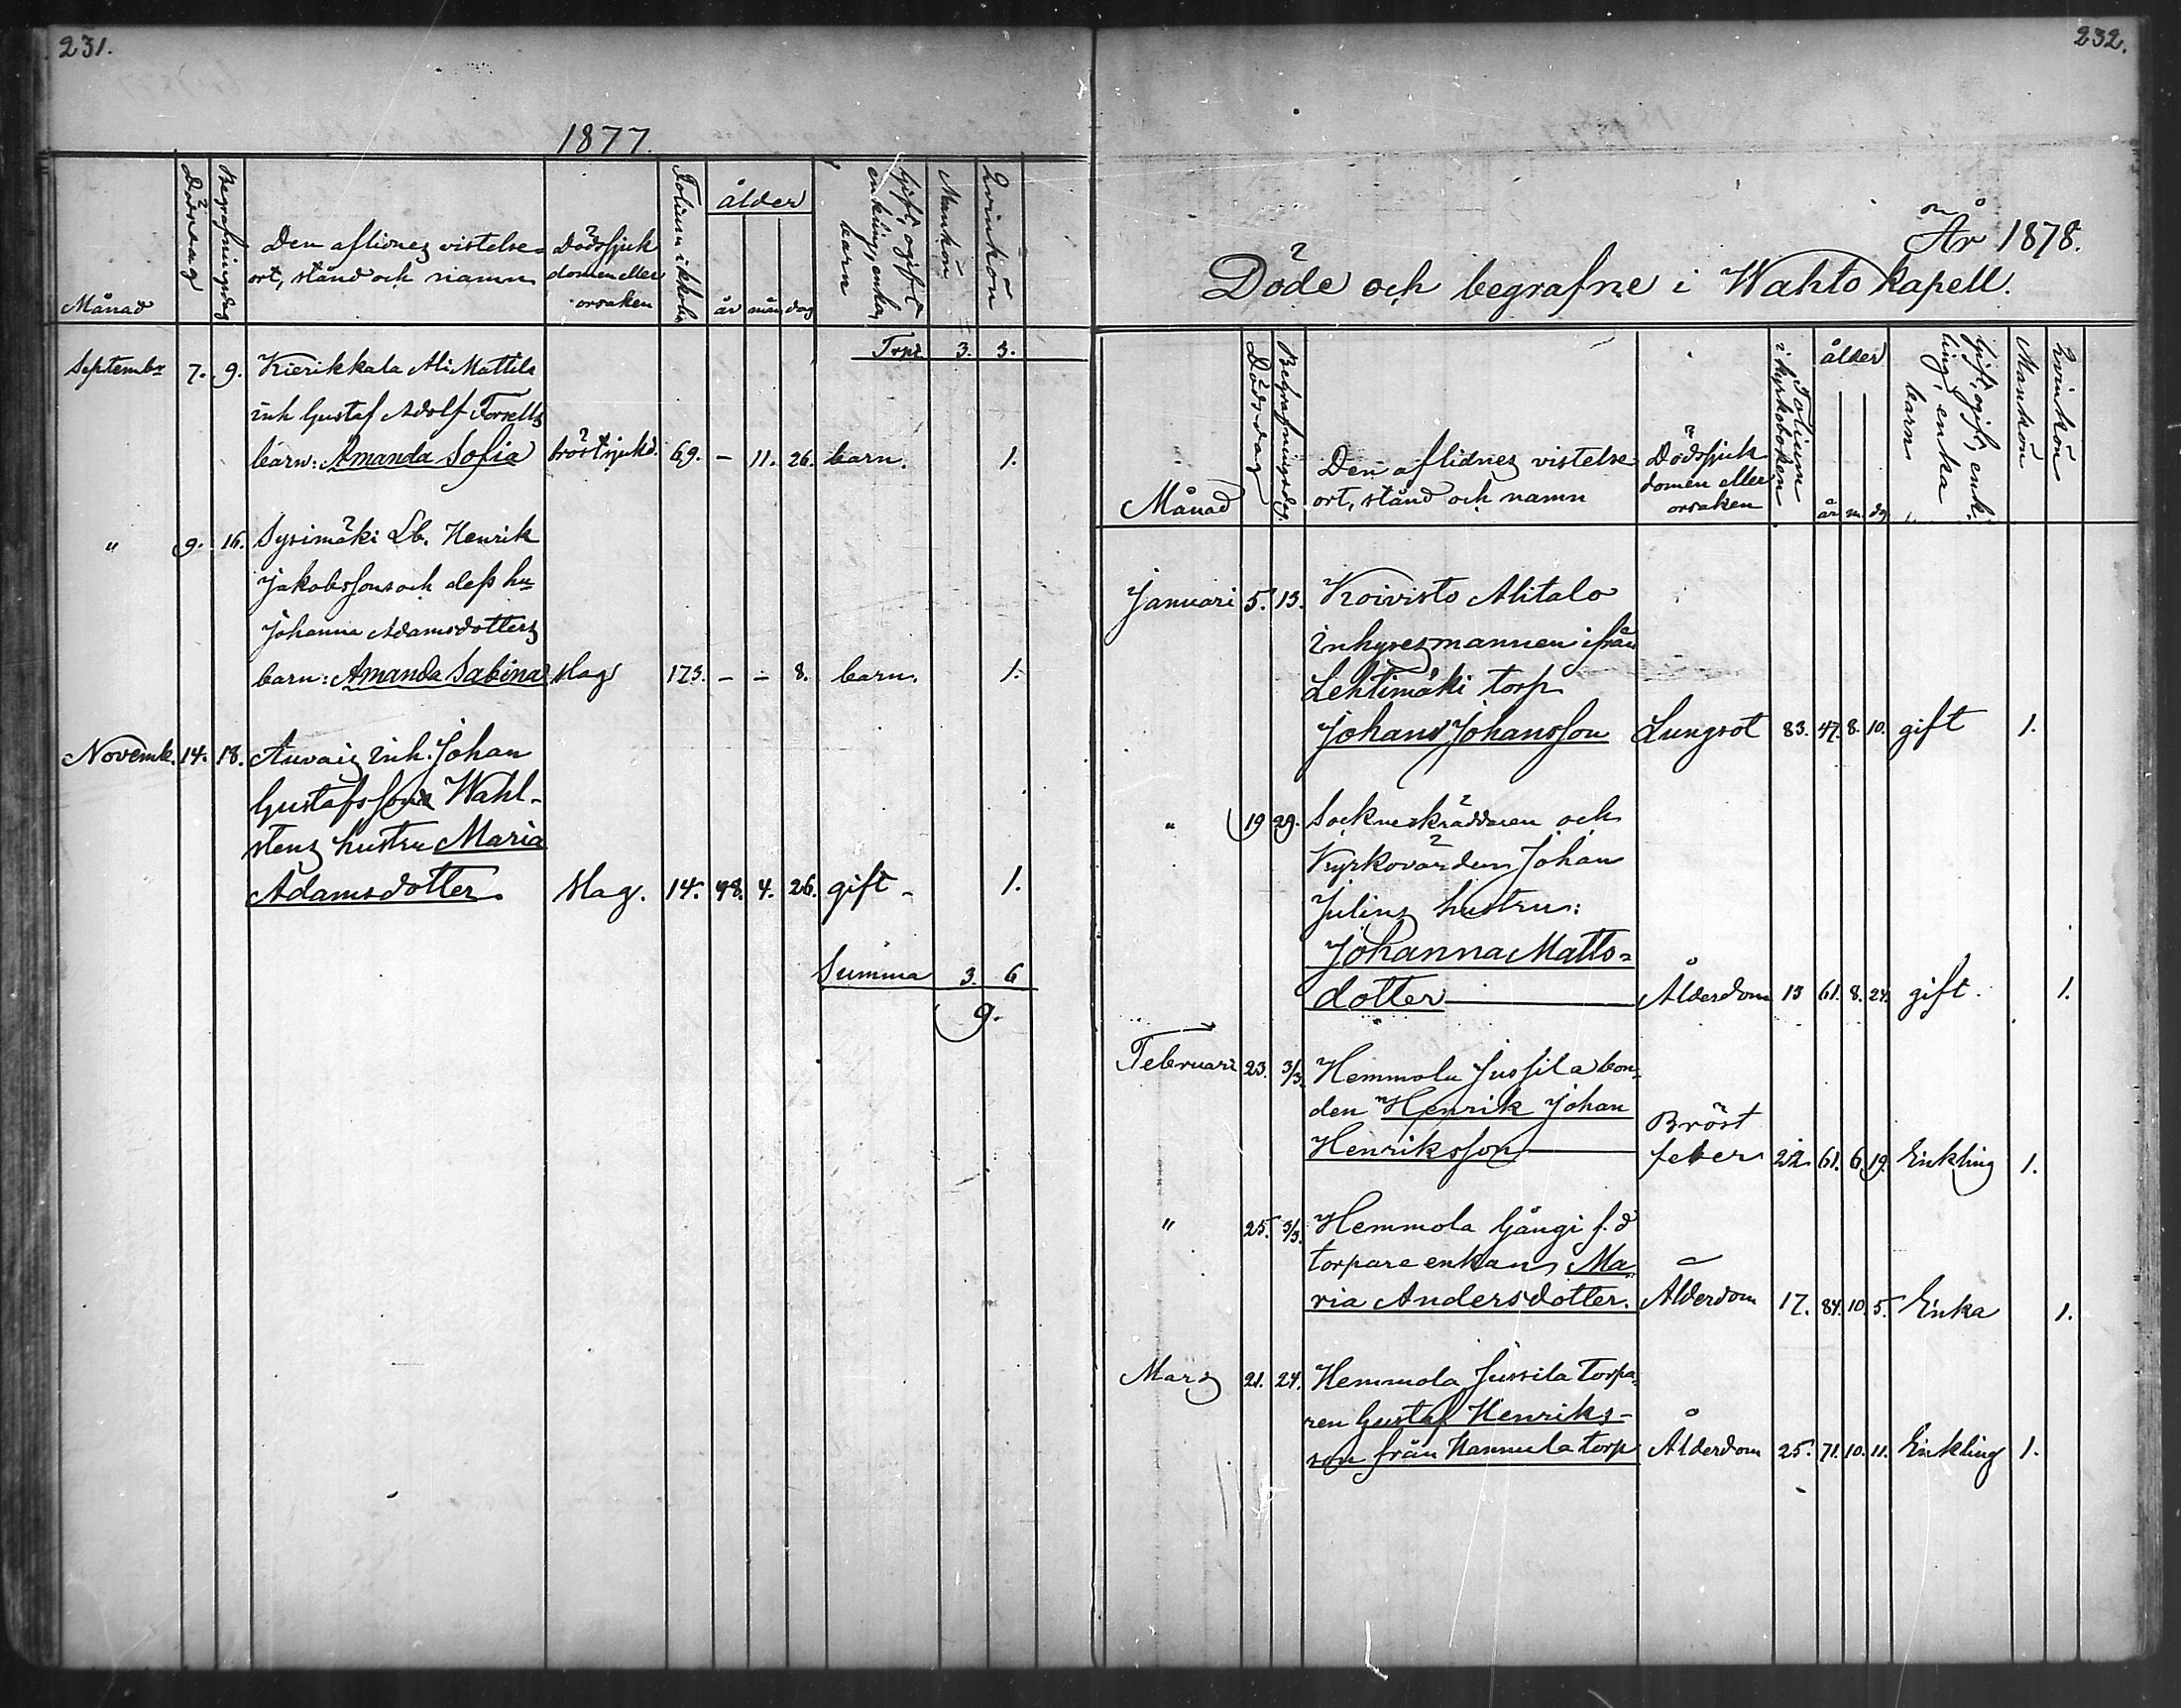 231.
1877.
Månad
Dödsdag
Begrafningsdag
Den aflidnes vistelse-
ort, stånd och namn
Dödssjuk
domen eller
orsaken
Folium i kkobn
ålder
år mån dag
Gift, ogift
enkling, enka,
barn
Mankön
Qvinkön
Trpt 3. 3.
Septembr 7. 9. Kierikkala Ali Mattila
inh Gustaf Adolf Forsells
barn: Amanda Sofia bröstsjukd. 69. – 11. 26. barn. 1.
" 9. 16. Sysimäki Lb. Henrik
Jakobssons och dess hu-
Johanna Adamsdotters
barn: Amanda Sabina slag 173. – – 8. barn. 1.
Novemb. 14. 18. Auvais inh. Johan
Gustafssons Wahl-
stens hustru Maria
Adamsdotter. slag. 14. 48. 4. 26. gift – 1.
Summa 3. 6
9.
232.
År 1878.
Döde och begrafne i Wahto kapell.
Månad
Dödsdag
Begrafningsdag.
Den aflidnes vistelse
ort, stånd och namn
Dödssjuk
domen eller
orsaken
Folium
i kyrkoboken
ålder
år m. dg
Gift, ogift, enk-
ling, enka
barn
Mankön
Qvinkön
Januari 5. 13. Koivisto Alitalo
inhyresmannen ifrån
Lehtimäki torp
Johan Johansson Lungsot 83. 47. 8. 10. gift 1.
" 19 29. Sockneskräddaren och
Kyrkovärden Johan
Julins hustru:
Johanna Matts-
dotter Ålderdom 13 61. 8. 24. gift. 1.
Februari 23. 3/3. Hemmola Jussila bon-
den Henrik Johan
Henriksson Bröst
feber 22 61. 6 19. Enkling 1.
" 25. 3/3. Hemmola Gångi f.d
torpare enkan Ma
ria Andersdotter. Ålderdom 17. 84. 10. 5. Enka 1.
Mars 21. 24. Hemmola Jussila torpa-
ren Gustaf Henriks-
son från Hannula torp Ålderdom 25. 71. 10. 11. Enkling 1.